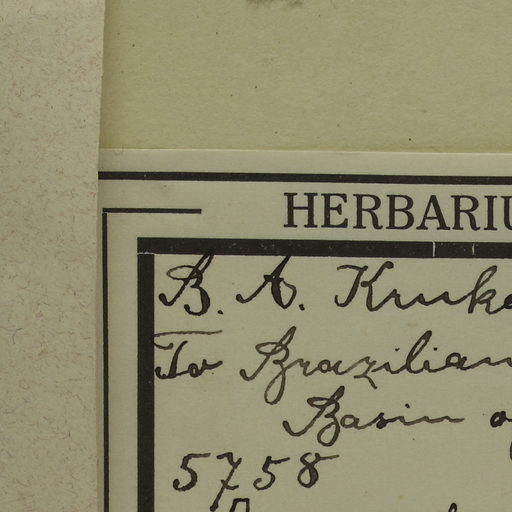 HERBARIU
B. A. Kruke
To Brazilian
Basin o
5758